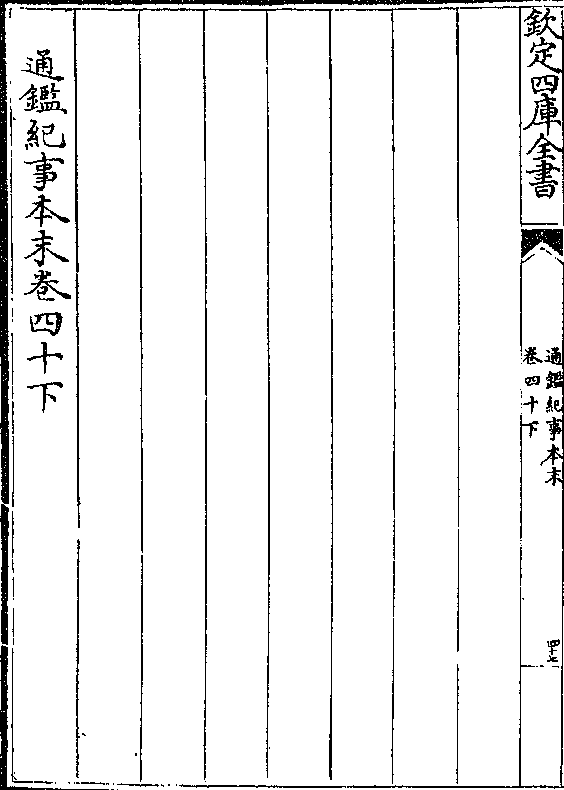 欽定四庫全書
通鑑紀事本末
卷四十下
四十七
通鑑紀事本末卷四十下